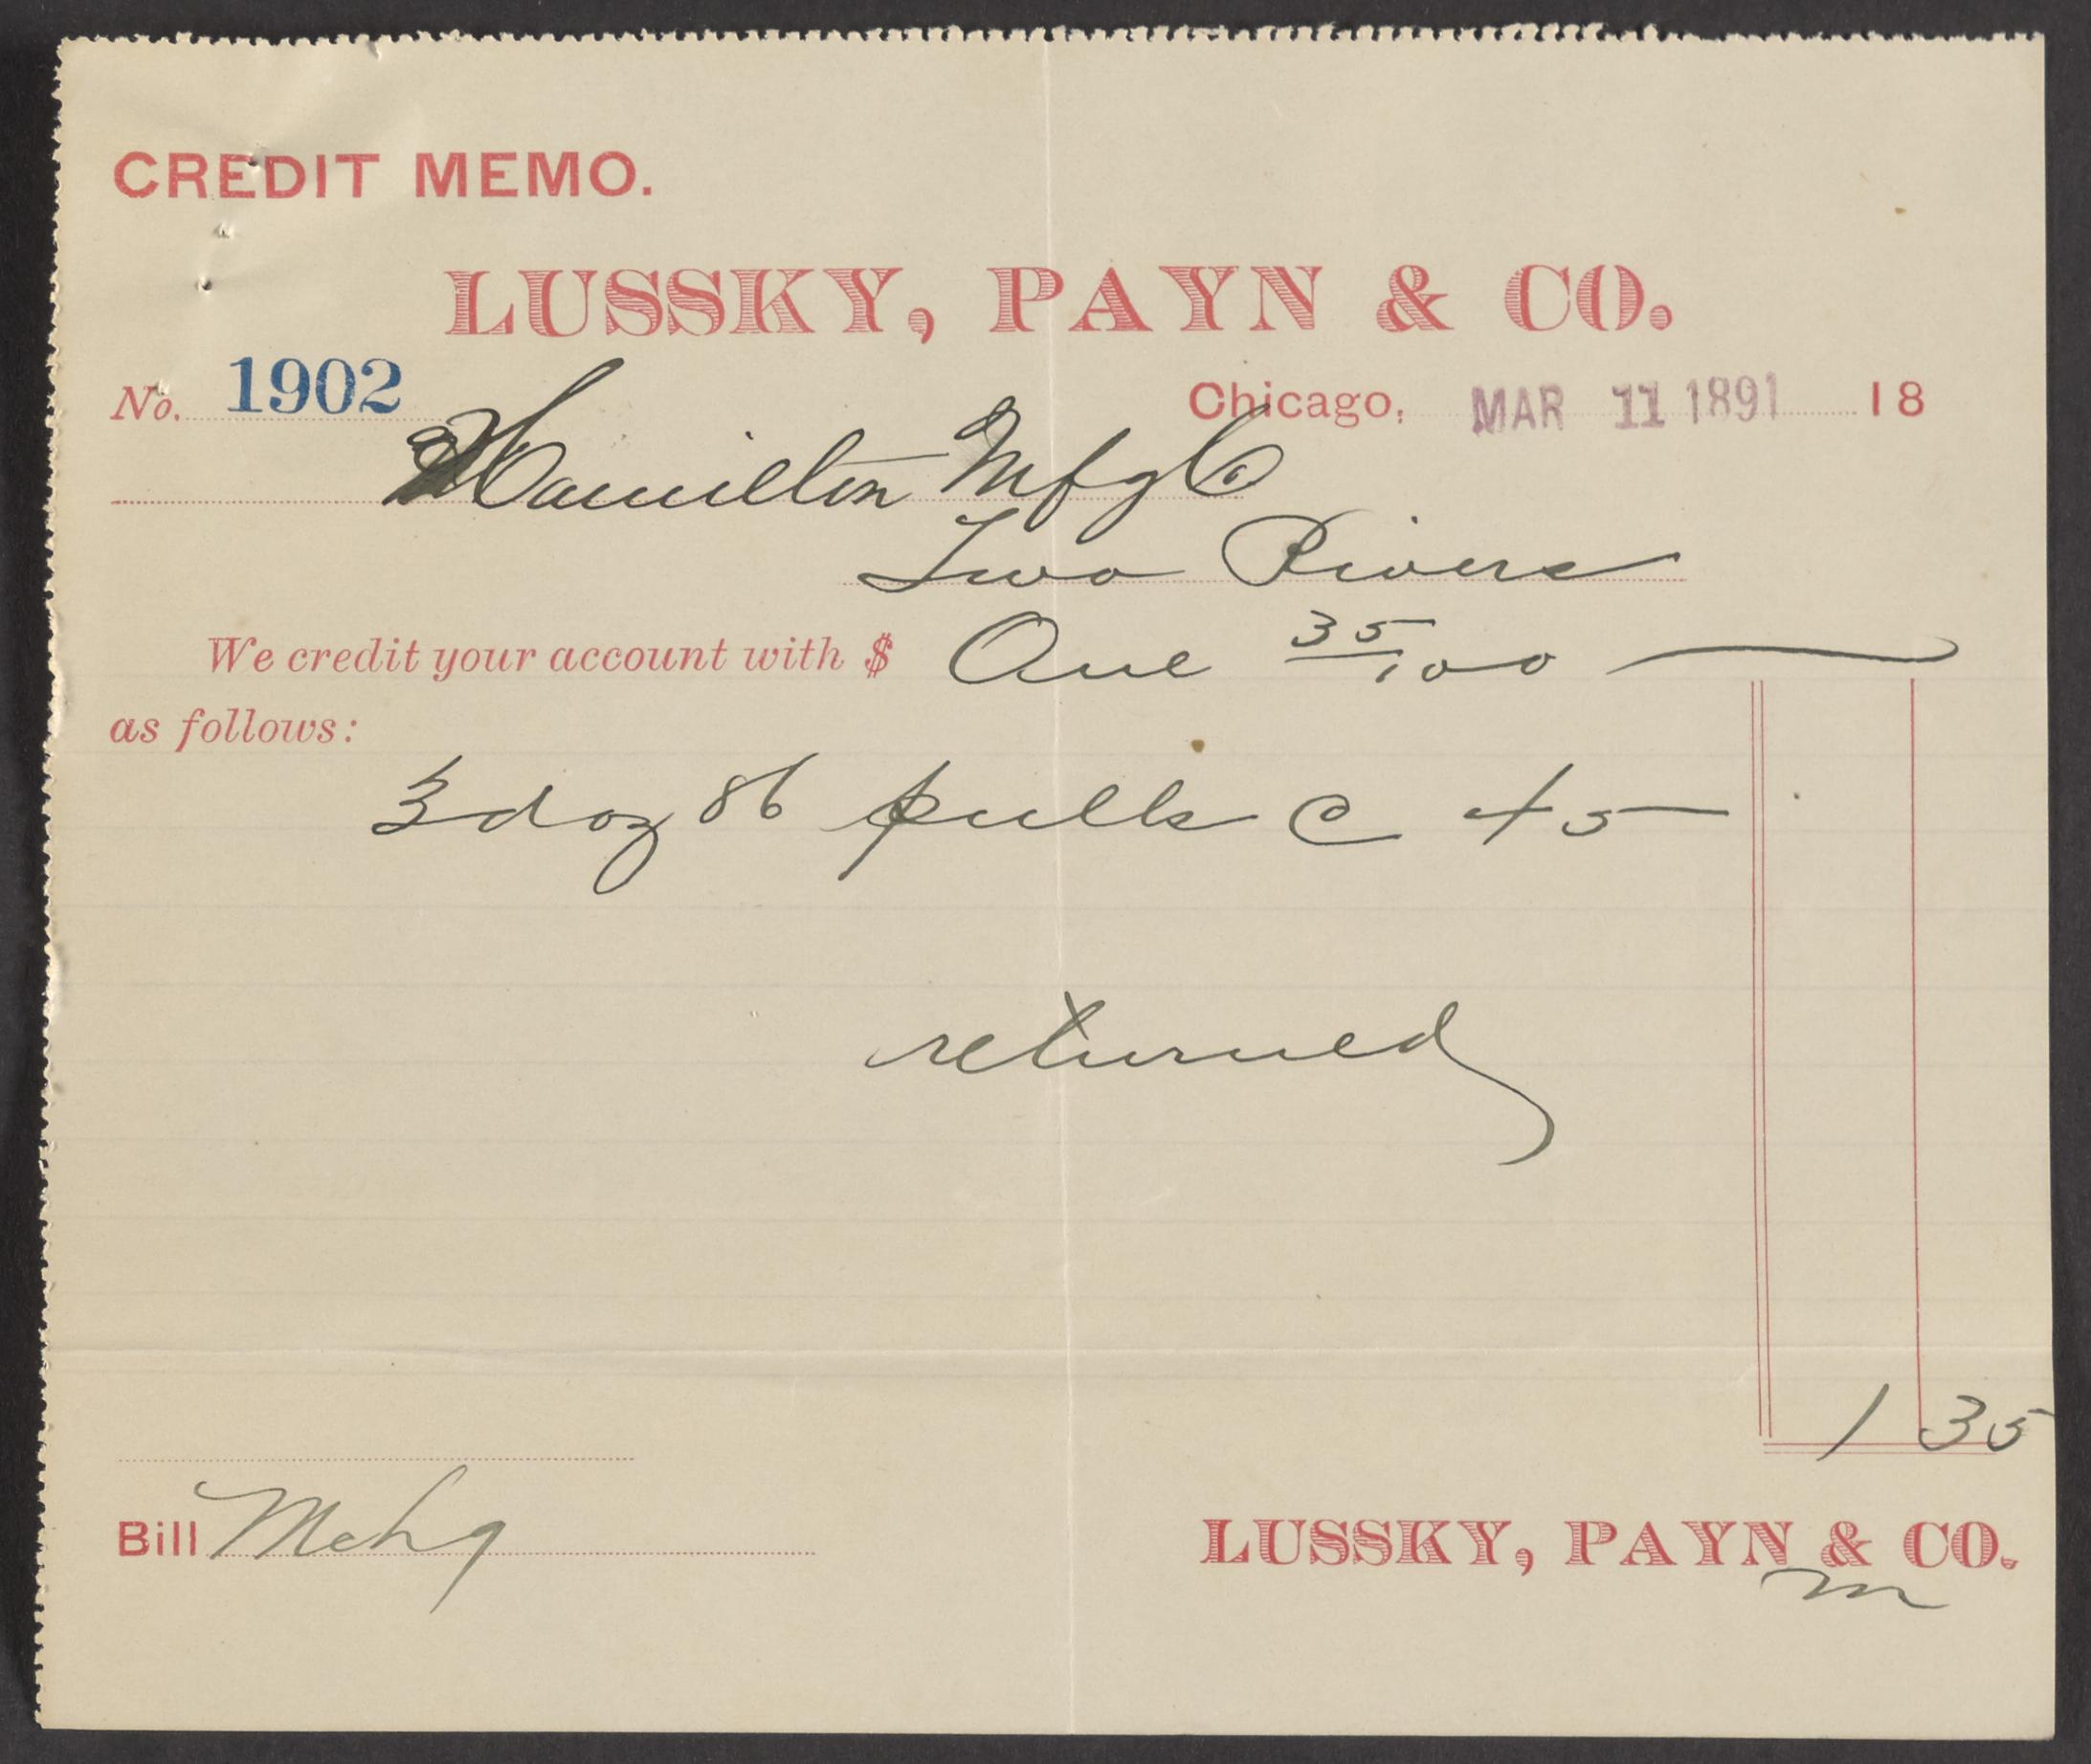 CREDIT MEMO.
LUSSKY, PAYN & CO.
No. 1902 Chicago, MAR 11 1891 18
Hamilton Mfg Co
Two Rivers
We credit your account with $ One 35/100
as follows:
3 doz 86 pulls @ 45
returned
1 35
Bill
LUSSKY, PAYN & CO.
m